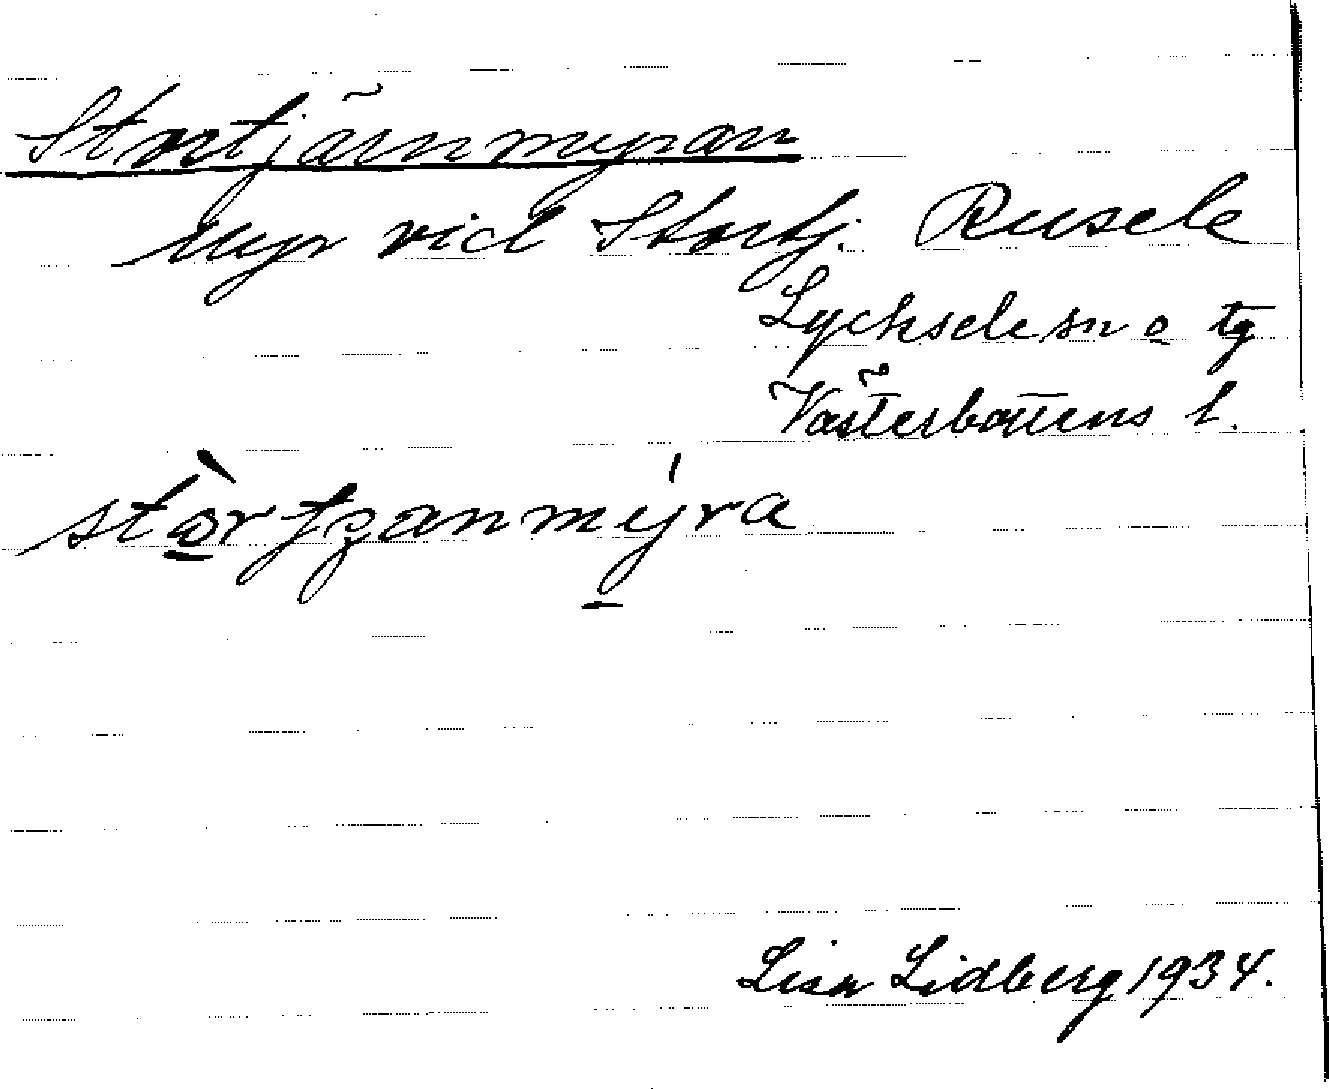 Stortjärnmyran
Myr vid Stortj. Rusele
Lycksele sn o tg
Västerbottens l.
stòrtʒanmýra
Lisa Lidberg 1934.